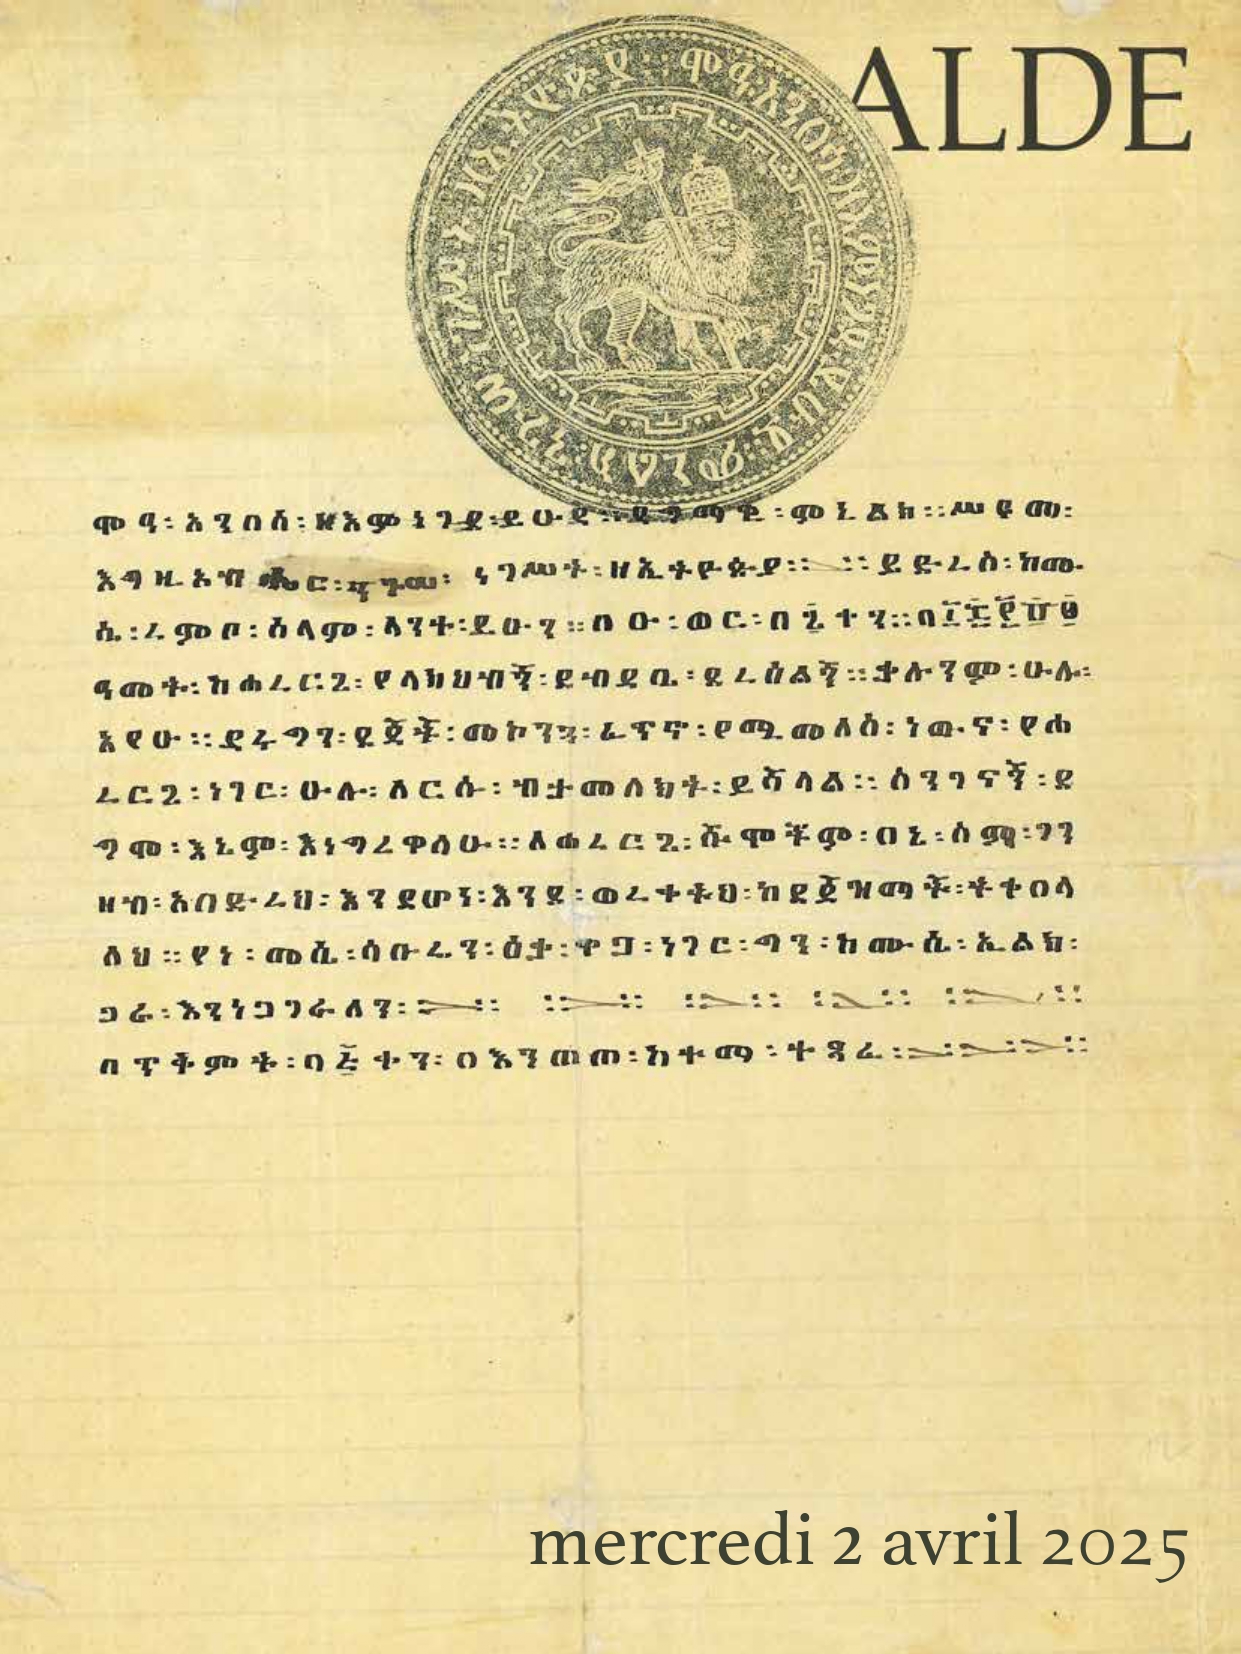 ALDE
ሞዓ፡አንበሰ፡ዘእምነገደ፡ይሁዳ፡ዳግማዊ፡ምኒልክ።ሥዩመ፡
እግዚአብሔር፡ንጉሠ፡ነገሥት፡ዘኢትዮጵያ።ይድረስ፡ከሙ
ሴ፡ረምቦ፡ሰላም፡ላንተ፡ይሁን።በ፡ወር፡በ፡ተን።በ፲፰፻፹፱
ዓመት፡ከሐረርጌ፡የላክህብኝ፡ደብዳቤ፡ደረሰልኝ።ታሉንም፡ሁሉ፡
አየሁ።ደሩግን፡ደጃች፡መኮንን፡ፈጥኖ፡የሚመለስ፡ነውና፡የሐ
ረርጌ፡ነገር፡ሁሉ፡ለርሱ፡ብታመለክት፡ይሻላል።ስንገናኝ፡ደ
ግሞ፡እኔም፡እነግረዋለሁ።ለሐረርጌ፡ሹሞችም፡በኔ፡ስም፡ገን
ዘብ፡አበድረህ፡እንደሆነ፡እንደ፡ወረተቶህ፡ከደጅዝማች፡ትተበላ
ለህ።የነ፡መሴ፡ሳቡረን፡ዕታ፡ዋጋ፡ነገር፡ግን፡ከሙሴ፡ኢልክ፡
ጋራ፡እንነጋገራለን፡
በጥቅምት፡ባ፭ተን፡በእንጦጦ፡ከተማ፡ተጻፈ፡
mercredi 2 avril 2025